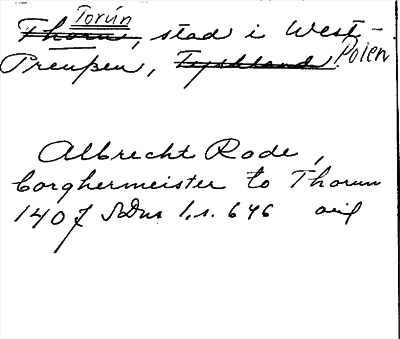 Torún
Thorn, stad i West-
Preuβen, Tyskland. Polen
Albrecht Rode,
borghermeister to Thorun
1407 SDns 1, s. 646